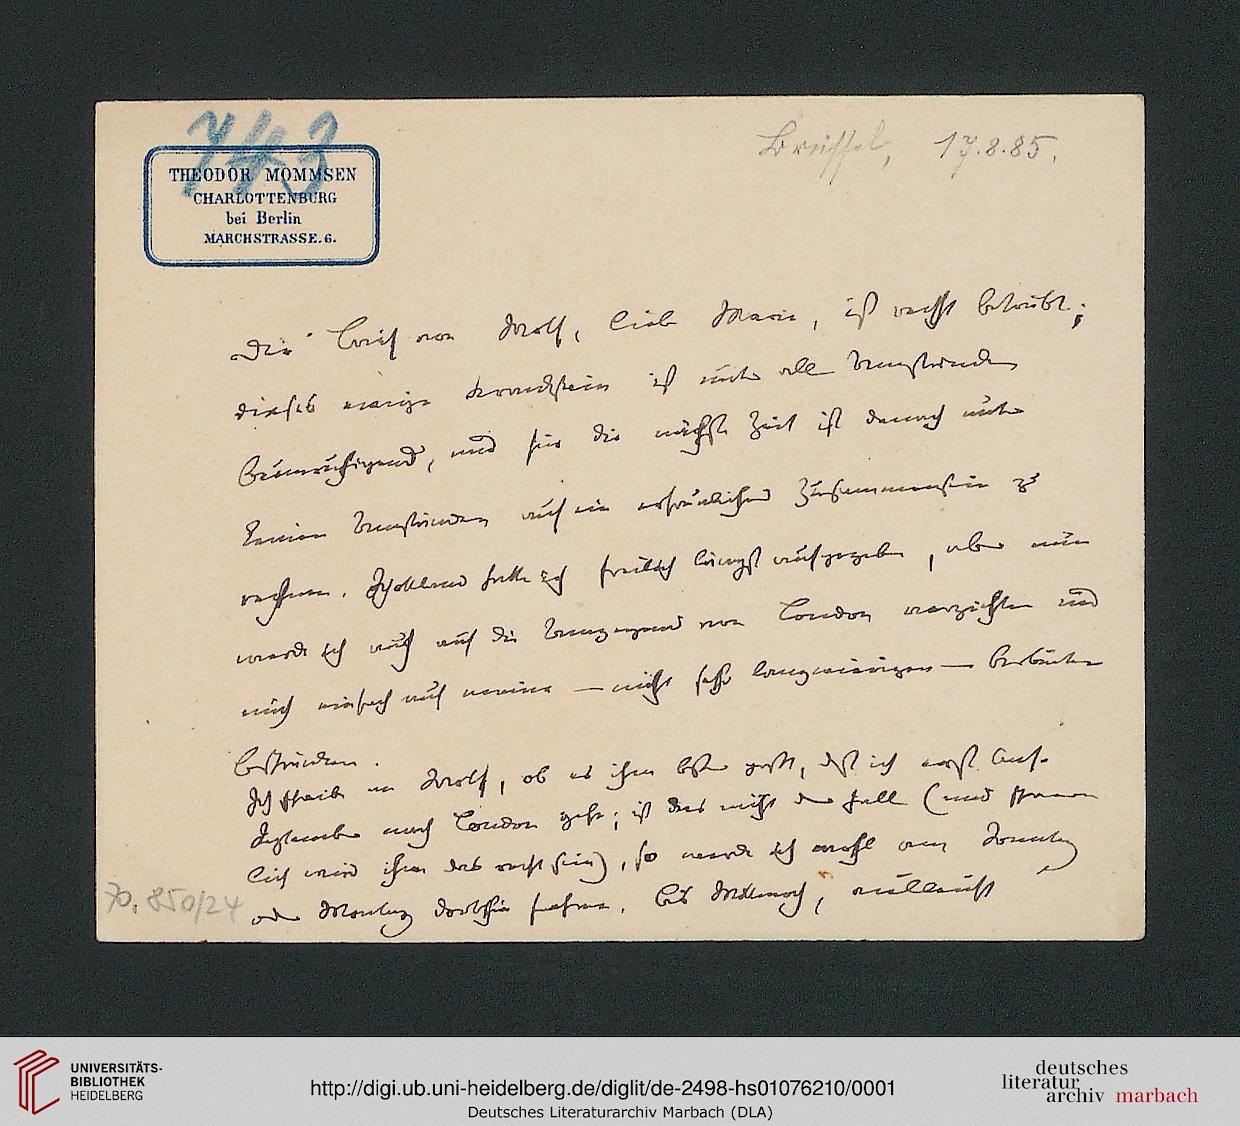 743
THEODOR MOMMSEN
CHARLOTTENBURG
bei Berlin
MARCHSTRASSE. 6.
Brüssel, 17.8.85.
Der Brief von Wolf, liebe Marie, ist recht betrübt;
dieses ewige Kranksein ist unter allen Umständen
beunruhigend, und für die nächste Zeit ist danach unter
keinen Umständen auf ein erfreuliches Zusammensein zu
rechnen. Schottland hatte ich freilich längst aufgegeben, aber nun
werde ich auch auf die Umgegend von London verzichten und
mich einfach auf meine — nicht sehr langwierigen — Arbeiten
beschränken.
Ich schreibe an Wolf, ob es ihm besser passt, dass ich erst Anf.
September nach London gehe; ist das nicht der Fall (und
lich wird ihm das recht sein), so werde ich wohl am Sonntag
oder Montag dorthin fahren. Bis Mittwoch, vielleicht
70. 850/24
UNIVERSITÄTS-
BIBLIOTHEK
HEIDELBERG
http://digi.ub.uni-heidelberg.de/diglit/de-2498-hs01076210/0001
Deutsches Literaturarchiv Marbach (DLA)
deutsches
literatur
archiv marbach